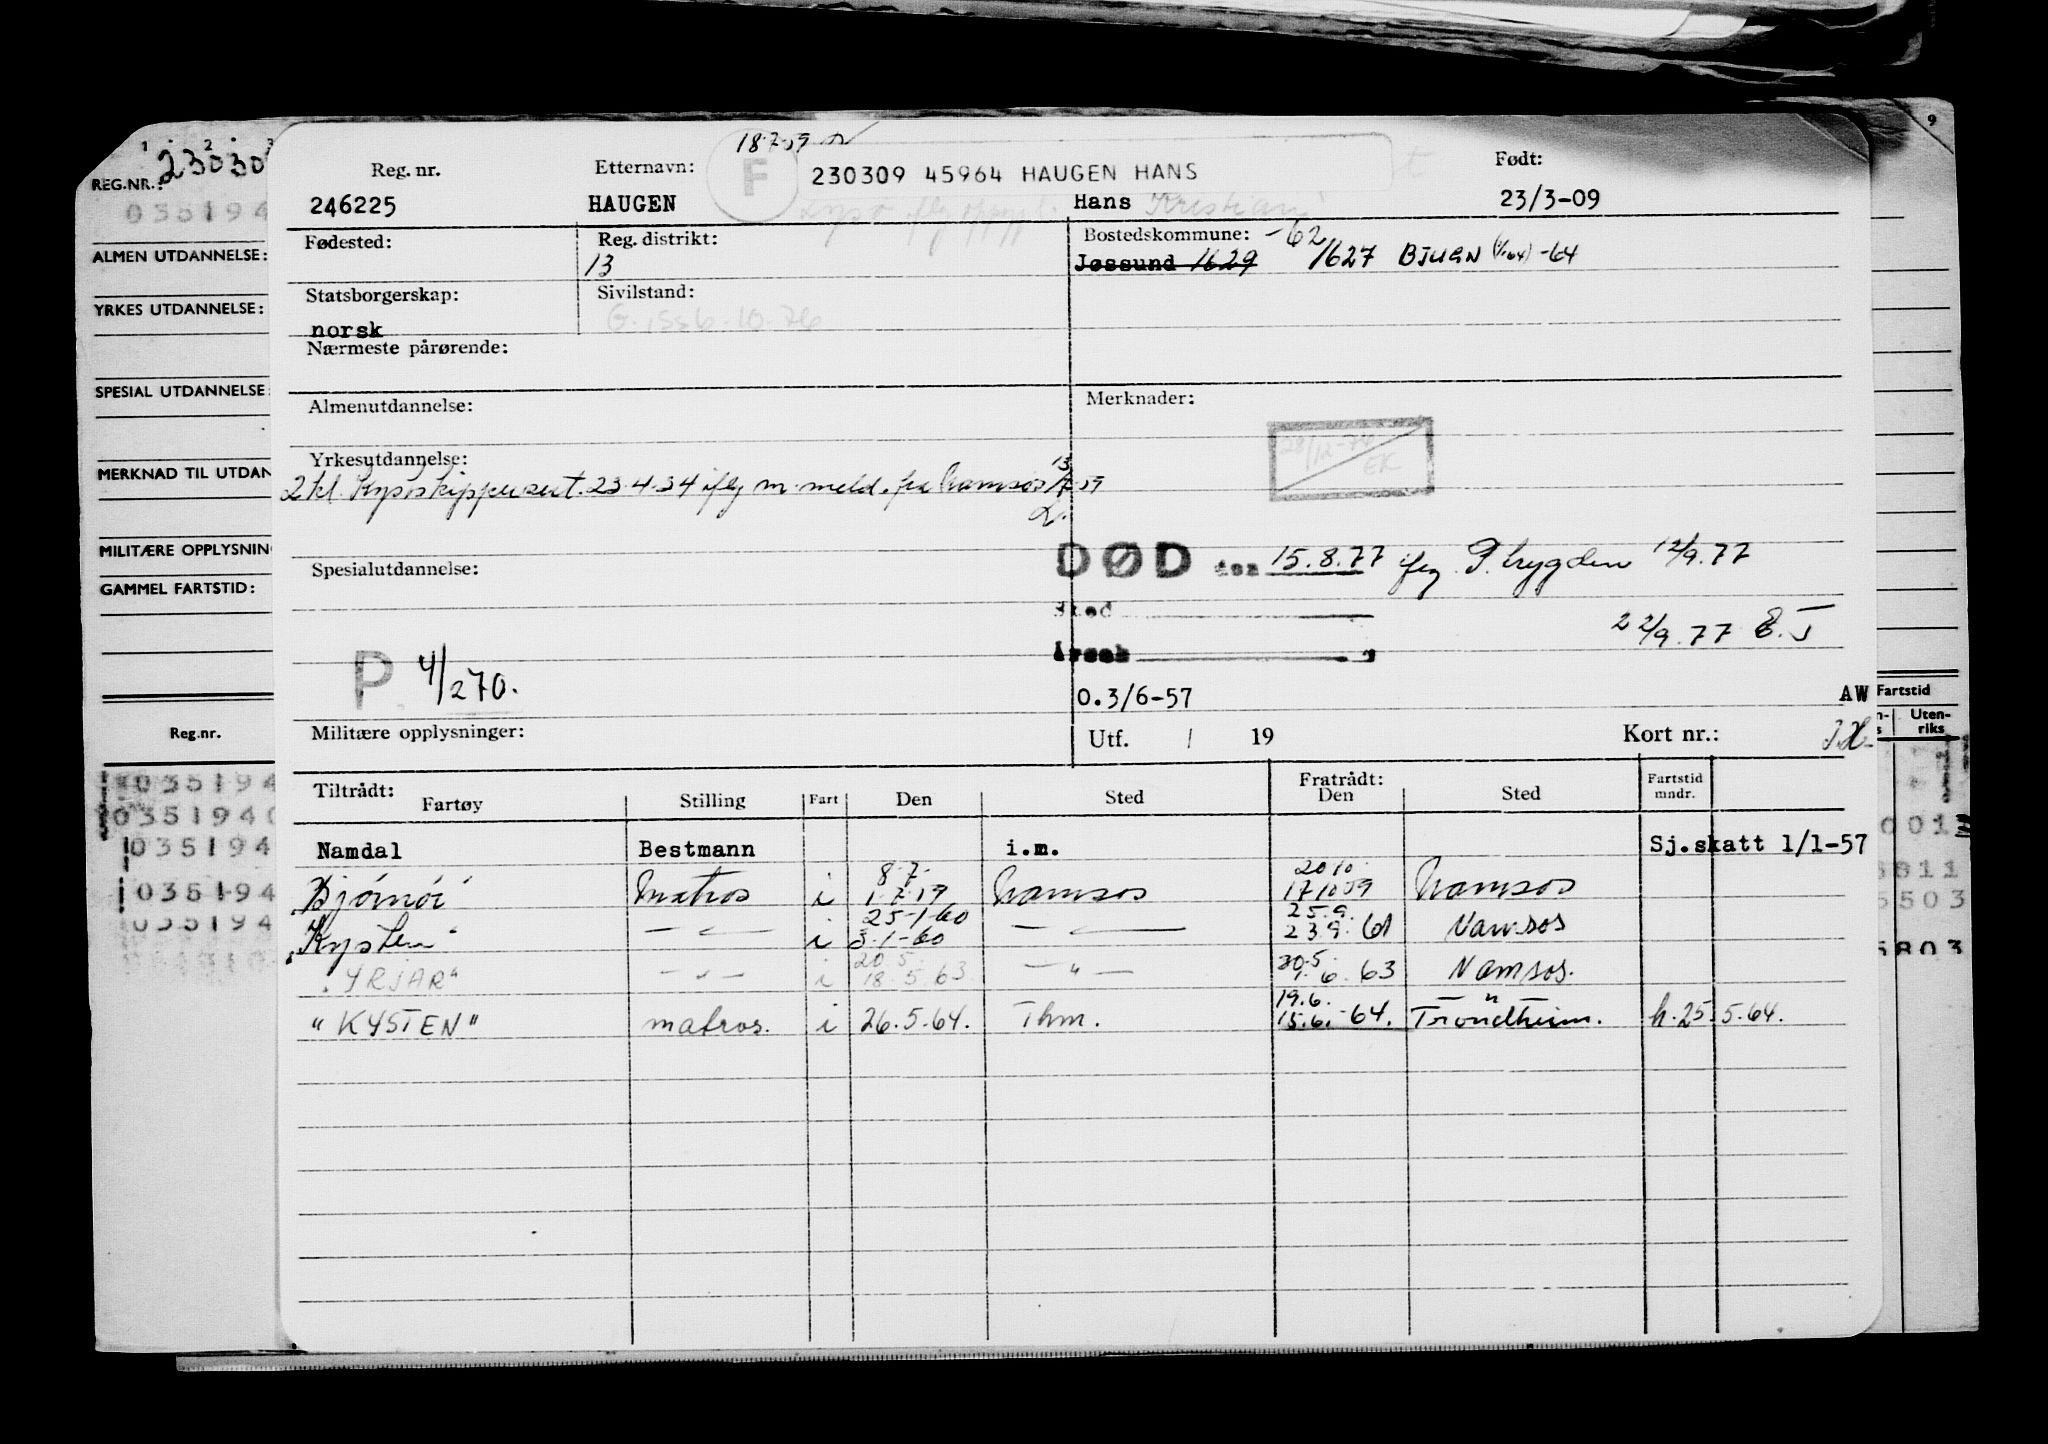 1 2 3
REG.NR.: 23030
035194
ALMEN UTDANNELSE:
YRKES UTDANNELSE:
SPESIAL UTDANNELSE
MERKNAD TIL UTDAN
MILITÆRE OPPLYSNIN
GAMMEL FARTSTID:
Reg.nr.
035194
0351940
035194
035194
035194
9
18.7.59
Reg. nr. Etternavn: F 230309 45964 HAUGEN HANS Født:
246225 HAUGEN Hans Kristian 23/3-09
Fødested: Reg. distrikt: Bostedskommune: -62
13 Jøssund 1629 1627 BJUGN (1/1-64) -64
Statsborgerskap: Sivilstand:
norsk G. 10.76
Nærmeste pårørende:
Almenutdannelse: Merknader:
28/12-76
EK
Yrkesutdannelse:
2 kl. Kystskippersert. 23-4-34 iflg m. meld. fra Namsos 13/7-59
DØD den 15.8.77 iflg P.trygden 12/9.77
Spesialutdannelse:
Sted
22/9.77
Årsak
P 4/270.
0.3/6-57 AW
Militære opplysninger: Utf. / 19 Kort nr.:
Fartstid
Uten-
riks
Tiltrådt: Fratrådt: Fartstid
mndr.
Fartøy Stilling Fart Den Sted Den Sted
Namdal Bestmann i.m. Sj.skatt 1/1-57
8.7. 20 10
Bjørnör Matros i 1.7.59 Namsos 17 10 59 Namsos
25-1-60 25.9.
"Kysten" — " — i 3.1-60 — " — 23 9. 61 Namsos
20.5. 30.5.
"YRJAR" — " — i 18.5.63 — " — 1.6.63 Namsos.
19.6. — " —
"KYSTEN" matros. i 26.5.64. Thm. 15.6.-64. Trondheim. h.25.5.64.
001
811
5503
5803